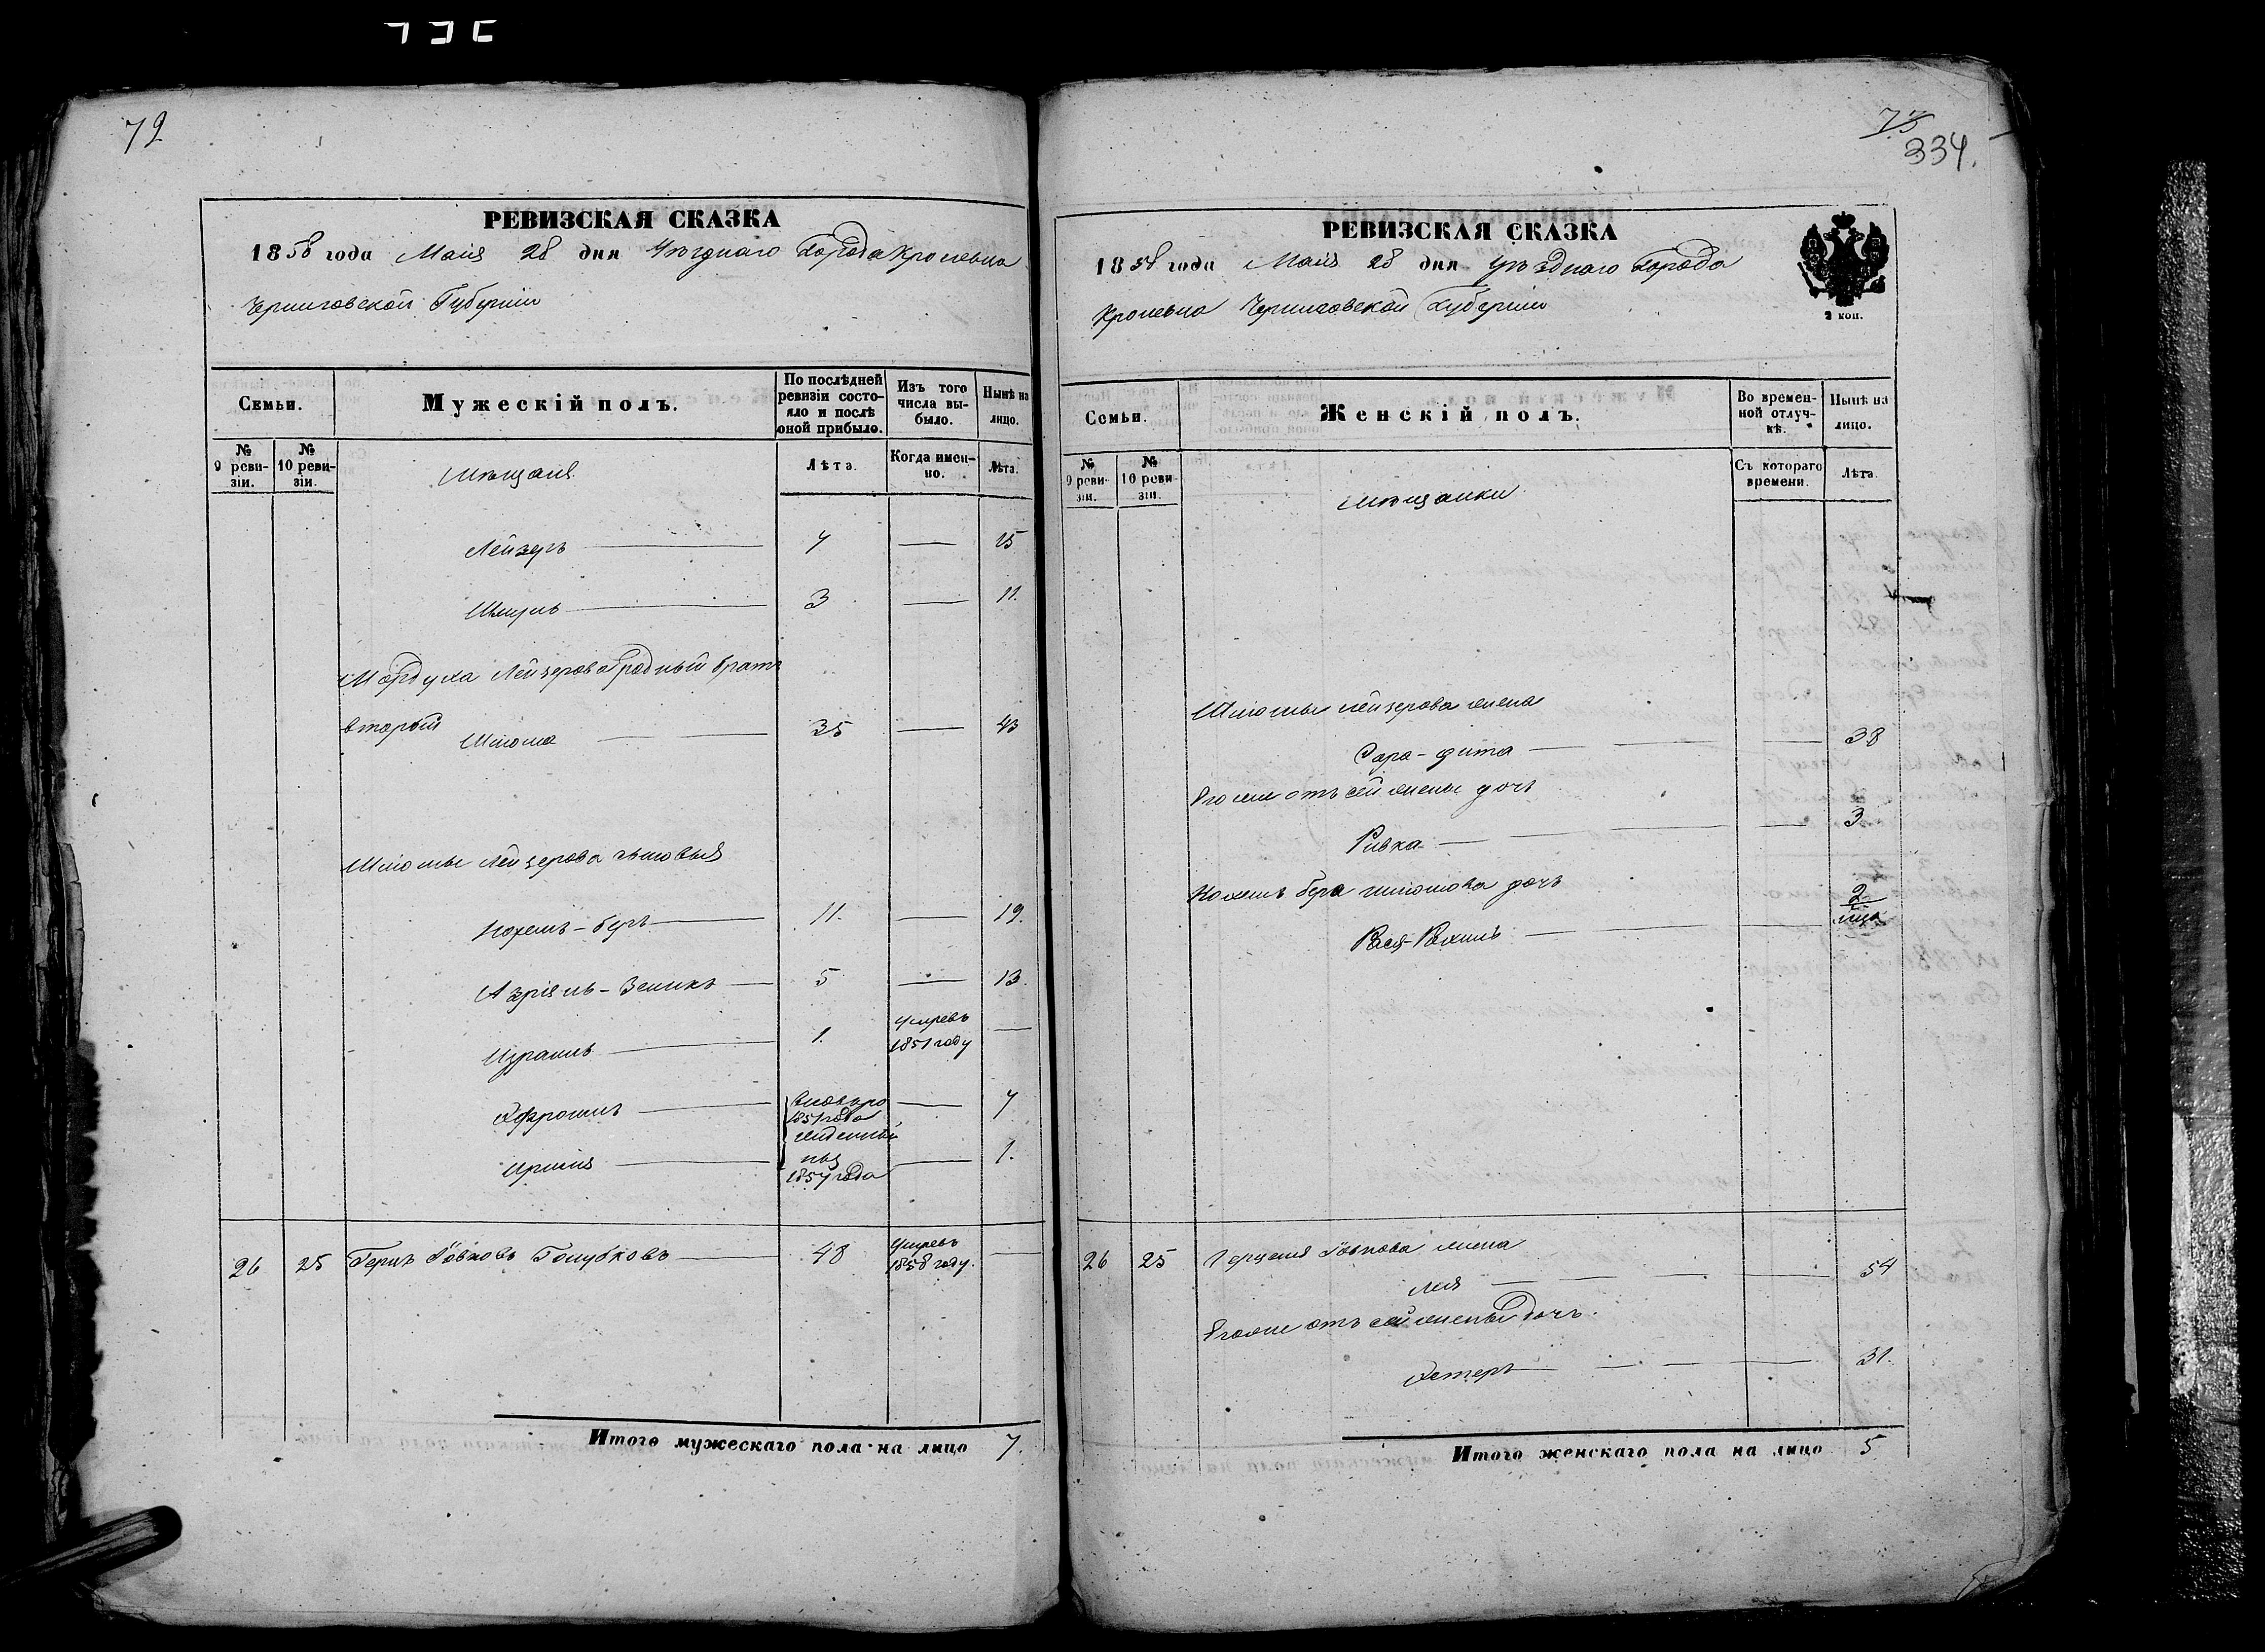 72
РЕВИЗСКАЯ СКАЗКА
1858 года Маія 28 дня Уѣзднаго Города Кролевца
Черниговской Губерніи
Семьи.
Мужескій полъ.
По послѣдней ревизіи состояло и послѣ оной прибыло.
Изъ того числа выбыло.
Нынѣ на лицо.
№ 9 ревизіи.
№ 10 ревизіи.
Мѣщаня
Лѣта.
Когда именно.
Лѣта.
Лейзеръ 7 15
Шмуль 3 11.
Мордуха Лейзерова родный братъ
вторый
Шлиома 35 43
Шлиомы Лейзерова сыновья
Нохемъ-Беръ 11. 19.
Азріель-Зеликъ 5 13.
Израиль 1. Умревъ 1851 году
Эфроимъ 1851 года 7
1857 года 1.
26 25 Герцъ Іовновъ Голубковъ 48 Умревъ 1858 году.
Итого мужескаго пола на лицо 7.
73
334.
РЕВИЗСКАЯ СКАЗКА
1858 года Маія 28 дня Уѣзднаго Города
Кролевца Черниговской Губерніи
2 коп.
Семьи.
Женскій полъ.
Во временной отлучкѣ.
Нынѣ на лицо.
№ 9 ревизіи.
№ 10 ревизіи.
Мѣщанки
Съ котораго времени.
Лѣта.
Шлиомы Лейзерова жена
Сара-Дита 38
Его же отъ сей жены дочь
Ривка 3
Нохемъ Бера Шлиомова дочь
Рася-Рахиль 2
26 25 Герцеля Іовнова жена
Лея 54
Его же отъ сей жены дочь.
Эстеръ 31.
Итого женскаго пола на лицо 5